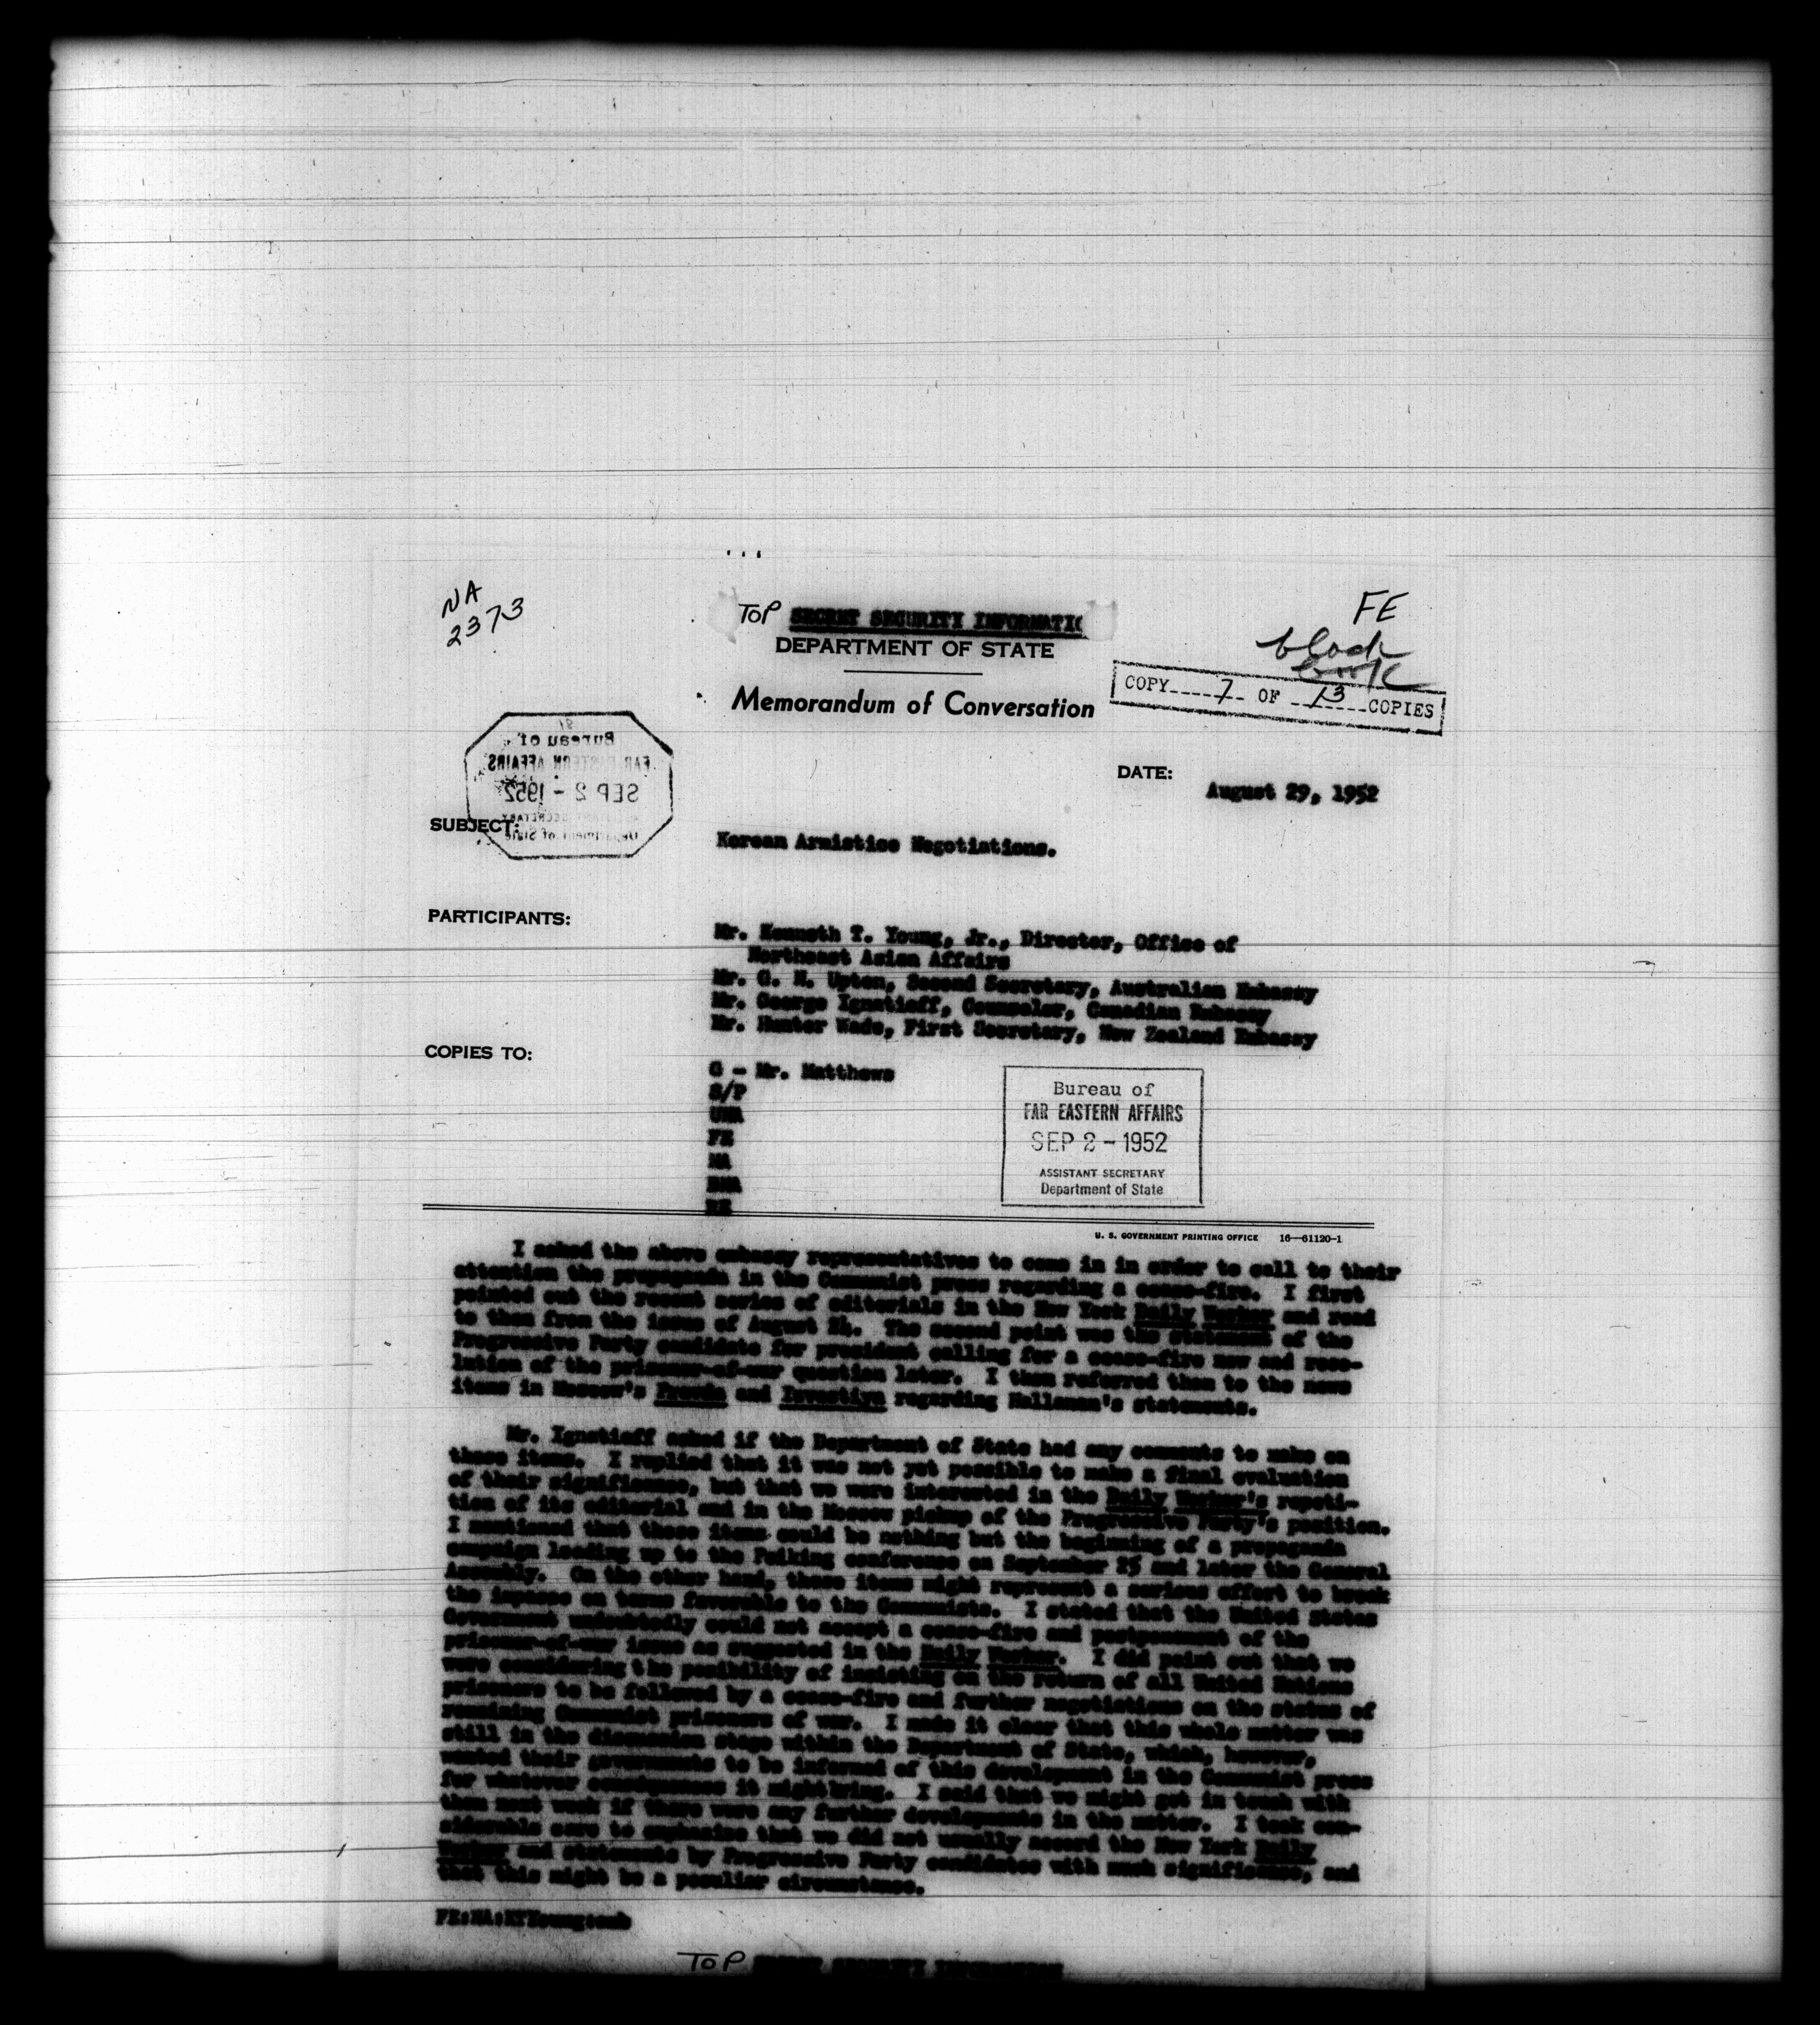 NA
2373
TOP SECRET SECURITY INFORMATIO
DEPARTMENT OF STATE
Memorandum of Conversation
FE
black
book
COPY 7 OF 13 COPIES
Bureau of
FAR EASTERN AFFAIRS
SEP 2 - 1952
ASSISTANT SECRETARY
Department of State
DATE:
August 29, 1952
SUBJECT:
Korean Armistice Negotiations.
PARTICIPANTS:
Mr. Kenneth T. Young, Jr., Director, Office of
Northeast Asian Affairs
Mr. G. N. Upton, Second Secretary, Australian Embassy
Mr. George Ignatieff, Counselor, Canadian Embassy
Mr. Hunter Wade, First Secretary, New Zealand Embassy
COPIES TO:
G - Mr. Matthews
S/P
UNA
FE
NA
BNA
Bureau of
FAR EASTERN AFFAIRS
SEP 2 - 1952
ASSISTANT SECRETARY
Department of State
U. S. GOVERNMENT PRINTING OFFICE 16—61120-1
I asked the above embassy representatives to come in in order to call to their
attention the propaganda in the Communist press regarding a cease-fire. I first
pointed out the recent series of editorials in the New York Daily Worker and read
to them from the issue of August 24. The second point was the statement of the
Progressive Party candidate for president calling for a cease-fire now and reso-
lution of the prisoner-of-war question later. I then referred them to the news
items in Moscow's Pravda and Izvestiya regarding Hallanan's statements.
Mr. Ignatieff asked if the Department of State had any comments to make on
these items. I replied that it was not yet possible to make a final evaluation
of their significance, but that we were interested in the Daily Worker's repeti-
tion of its editorial and in the Moscow pickup of the Progressive Party's position.
I mentioned that these items could be nothing but the beginning of a propaganda
campaign leading up to the Peiking conference on September 25 and later the General
Assembly. On the other hand, these items might represent a serious effort to break
the impasse on terms favorable to the Communists. I stated that the United States
Government undoubtedly could not accept a cease-fire and postponement of the
prisoner-of-war issue as suggested in the Daily Worker. I did point out that we
were considering the posibility of insisting on the return of all United Nations
prisoners to be followed by a cease-fire and further negotiations on the status of
remaining Communist prisoners of war. I made it clear that this whole matter was
still in the discussion stage within the Department of State, which, however,
wanted their governments to be informed of this development in the Communist press
for whatever consequences it might bring. I said that we might get in touch with
them next week if there were any further developments in the matter. I took con-
siderable care to emphasize that we did not usually accord the New York Daily
Worker and statements by Progressive Party candidates with much significance, and
that this might be a peculiar circumstance.
FE:NA:KTYoung:
TOP SECRET SECURITY INFORMATION